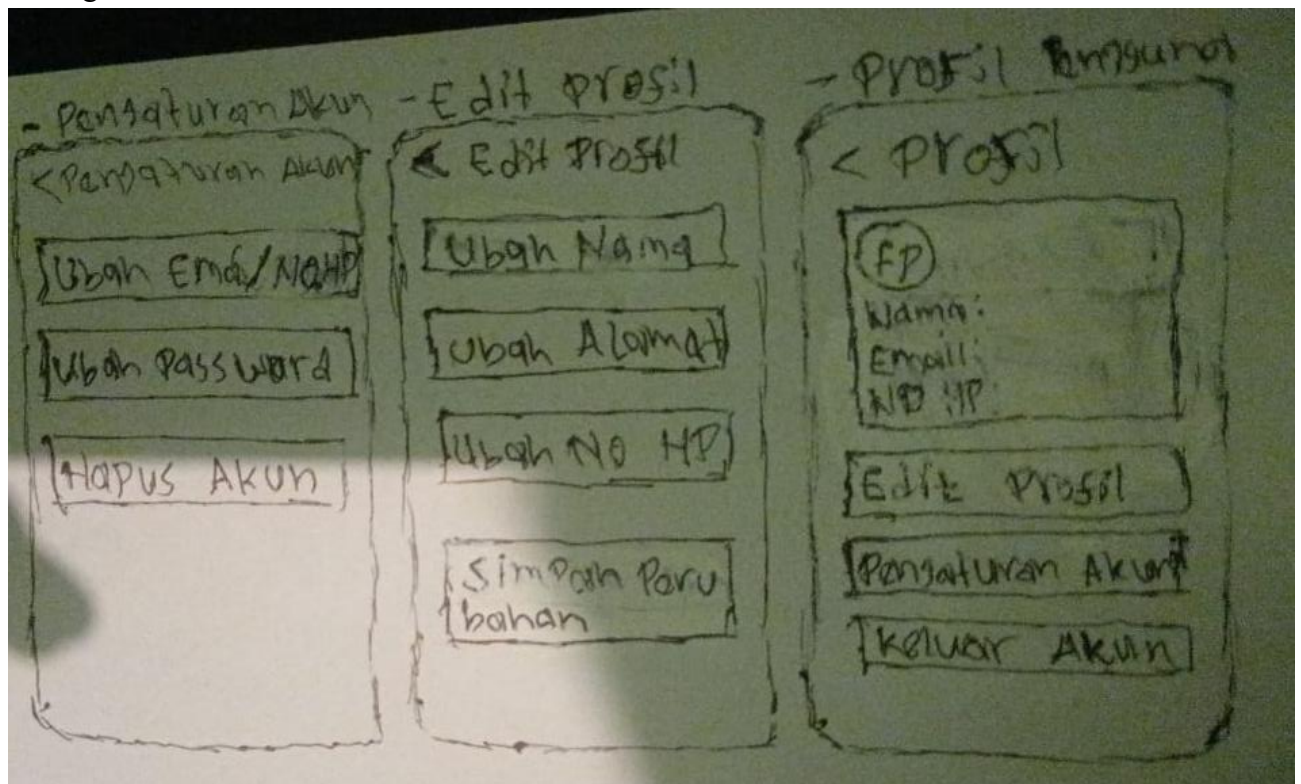 - Pengaturan Akun
< Pengaturan Akun
Ubah Email/NoHP
Ubah Password
Hapus Akun
- Edit Profil
< Edit Profil
Ubah Nama
Ubah Alamat
Ubah No HP
Simpan Peru
bahan
- Profil Pengguna
< Profil
FP
Nama:
Email:
NO HP:
Edit Profil
Pengaturan Akun
Keluar Akun